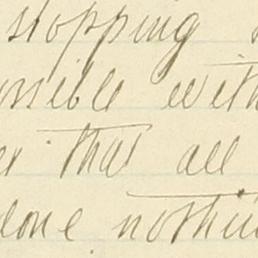 stopping
ossible with
that all
done nothin